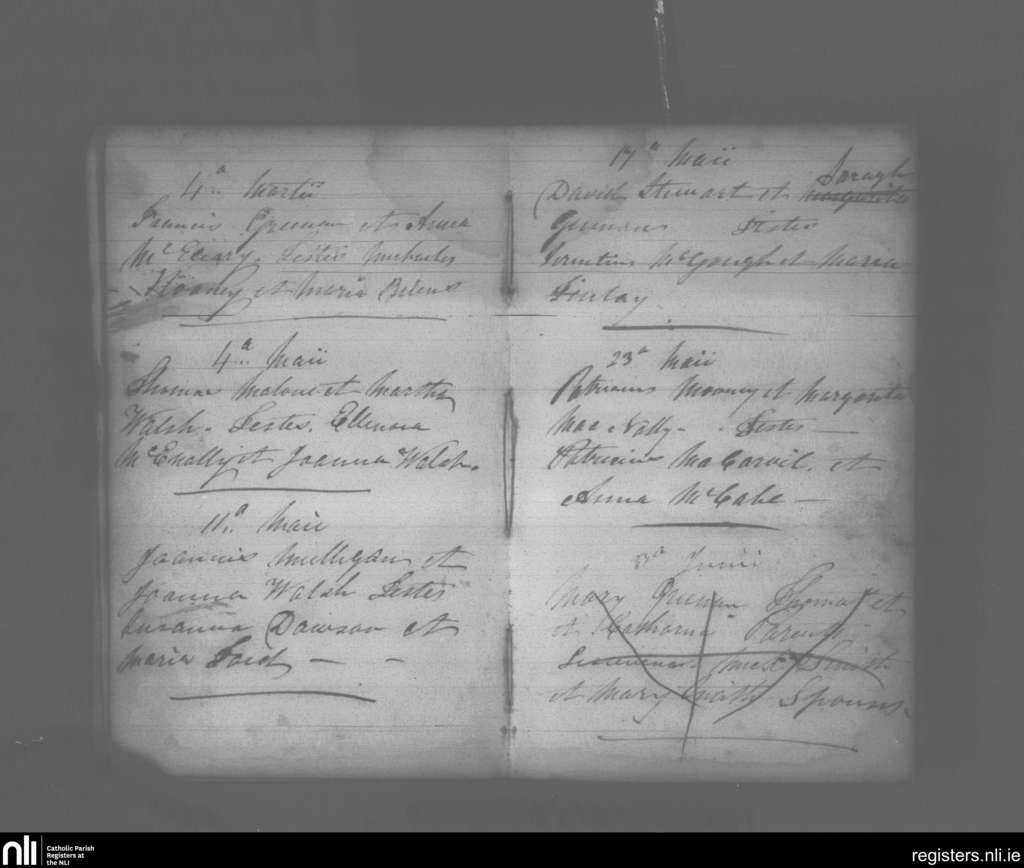 4ª Martii
Francis Greenan et Anna
McCleary. Testes Michaeles
et Maria
4ª Maii
Thomas Malone et Martha
Walsh. Testes. Ellenora
McEnally et Joanna Walsh.
11ª Maii
Joannis Mulligan et
Joanna Walsh Testes
Susanna Dawson et
Maria Ford
17ª Maii
David Stewart et Saragh
Testes
McGough et Maria
Finlay
23ª Maii
Patricius Mooney et Margarita
MacNally - Testes
Patricius MaCarvil. et
Anna McCabe
3ª Junii
Mary Greenan Thomas et
et Catharna Parents
et Mary Smith Sponsors
nli
Catholic Parish
Registers at
the NLI
registers.nli.ie